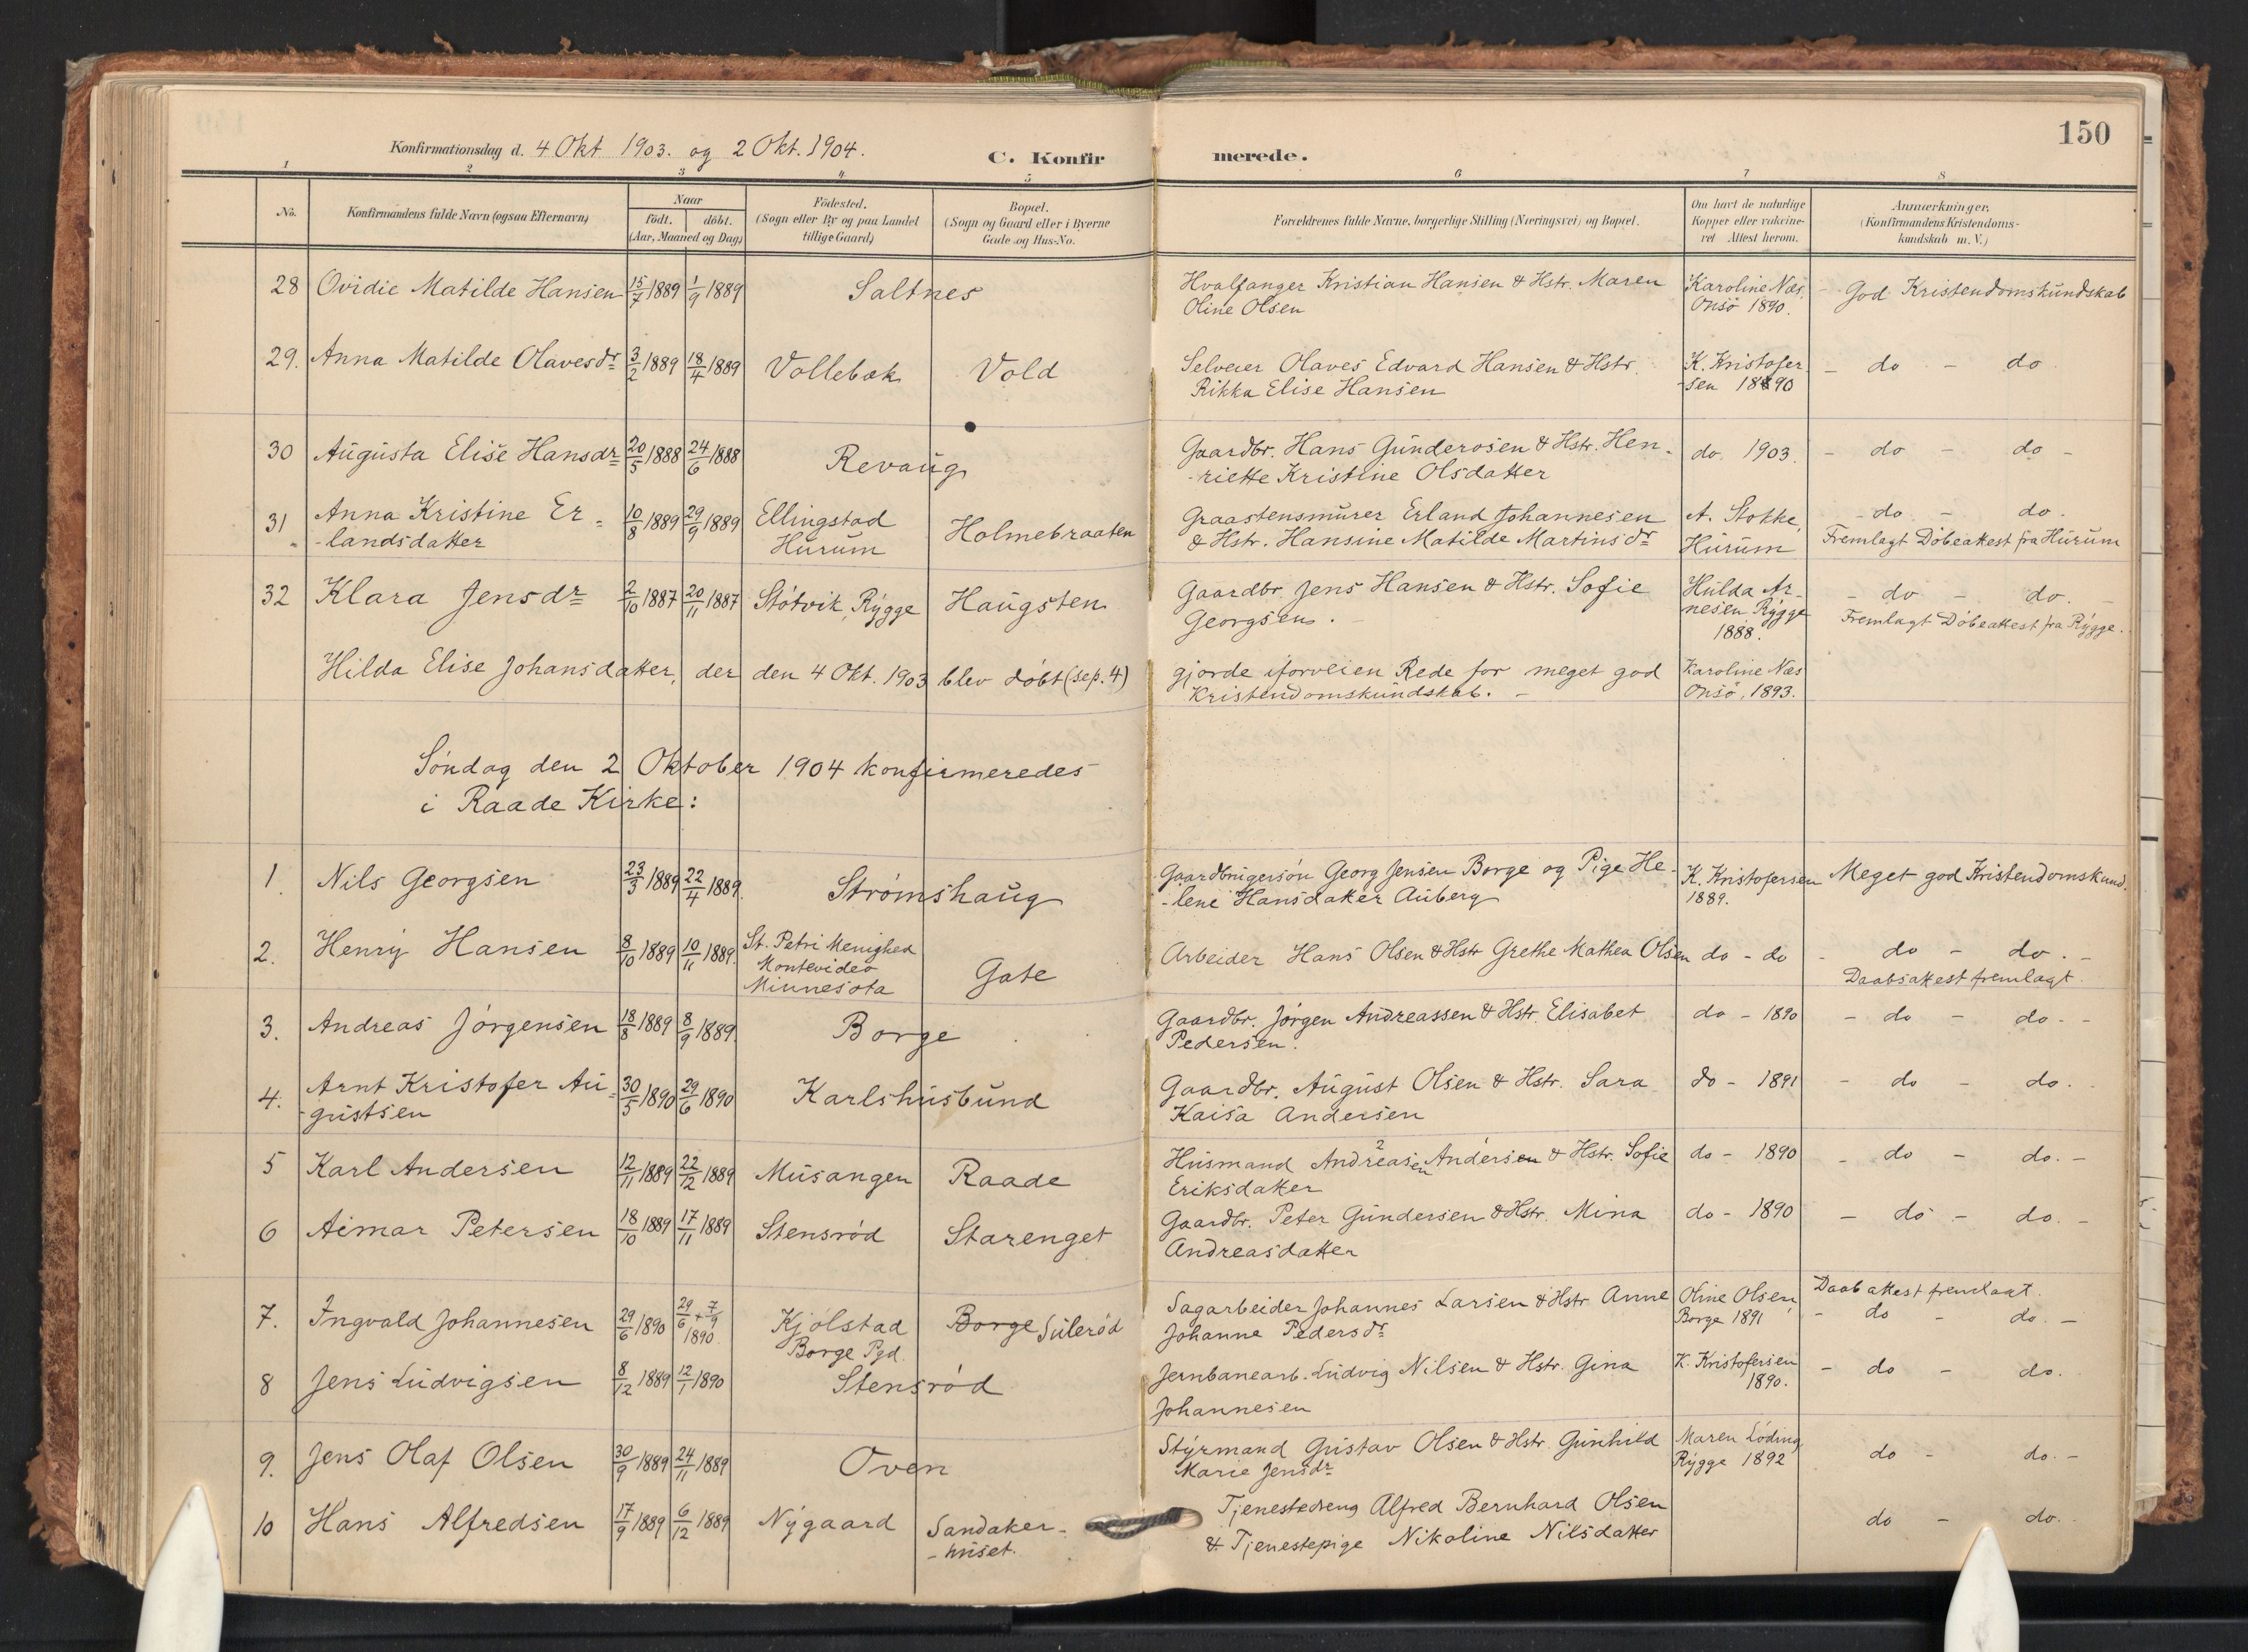 150
Konfirmationsdag d. 4 Okt 1903. og 2 Okt. 1904.
C. Konfirmerede.
1 2 3 4 5 6 7 8
No.
Konfirmandens fulde Navn (ogsaa Efternavn)
Naar
födt. döbt.
(Aar, Maaned og Dag)
Födested.
(Sogn eller By og paa Landet
tillige Gaard)
Bopæl.
(Sogn og Gaard eller i Byerne
Gade og Hus-No.
Forældrenes fulde Navne, borgerlige Stilling (Næringsvei) og Bopæl.
Om havt de naturlige
Kopper eller vakcine-
ret Attest herom.
Anmærkninger.
(Konfirmandens Kristendoms-
kundskab m. V.)
28 Ovidie Matilde Hansen 15/7 1889 1/9 1889 Saltnes
Hvalfanger Kristian Hansen & Hstr. Maren
Oline Olsen
Karoline Næs,
Onsö 1890.
God Kristendomskundskab
29. Anna Matilde Olavesdr 3/2 1889 18/4 1889 Vollebæk Vold
Selveier Olaves Edvard Hansen & Hstr.
Rikka Elise Hansen
K. Kristofer
-sen 1890
- do - do
30 Augusta Elise Hansdr 20/5 1888 24/6 1888 Revaug
Gaardbr. Hans Gunderosen & Hstr. Hen-
-riette Kristine Olsdatter
do. 1903.
- do - do -
31 Anna Kristine Er-
-landsdatter
10/8 1889 29/9 1889
Ellingstad
Hurum
Holmebraaten
Graastensmurer Erland Johannesen
& Hstr. Hansine Matilde Martinsdr
A. Stokke,
Hurum
- do - do.
Fremlagt Döbeattest fra Hurum
32 Klara Jensdr 2/10 1887 20/11 1887 Støtvik, Rygge Haugsten
Gaardbr. Jens Hansen & Hstr. Sofie
Georgsen.
Hulda Ar-
nesen Rygge
1888.
- do - do. -
Fremlagt Döbeattest fra Rygge.
Hilda Elise Johansdatter, der den 4 Okt. 1903 blev döbt (sep. 4) gjorde iforveien Rede for meget god
Kristendomskundskab. -
Karoline Næs
Onsö, 1893.
Söndag den 2 Oktober 1904 konfirmeredes
i Raade Kirke:
1. Nils Georgsen 23/3 1889 22/4 1889. Strømshaug
Gaardbrugersön Georg Jensen Borge og Pige He-
-lene Hansdatter Auberg
K. Kristofersen
1889.
Meget god Kristendomskund.
2. Henry Hansen 8/10 1889 10/11 1889.
St. Petri Menighed
Montevideo
Minnesota
Gate
Arbeider Hans Olsen & Hstr Grethe Mathea Olsen
do - do
- do - do. -
Daabsattest fremlagt.
3. Andreas Jörgensen 18/8 1889 8/9 1889. Borge
Gaardbr. Jörgen Andreassen & Hstr. Elisabet
Pedersen.
do - 1890
- do - do. -
4. Arnt Kristofer Au-
-gustsen
30/5 1890 29/6 1890 Karlshusbund
Gaardbr. August Olsen & Hstr. Sara
Kaisa Andersen
do - 1891
- do - do.
5 Karl Andersen 12/11 1889 22/12 1889 Musangen Raade
Husmand Andreasen Andersen & Hstr. Sofie
Eriksdatter
do - 1890
- do - do. -
6 Aimar Petersen 18/10 1889 17/11 1889 Stensröd Starenget
Gaardbr. Peter Gundersen & Hstr. Mina
Andreasdatter
do - 1890
- do - do. -
7. Ingvald Johannesen 29/6 1890 29/6 + 7/9
1890
Kjölstad
Borge Pgd.
Borge Sulerød
Sagarbeider Johannes Larsen & Hstr. Anne
Johanne Pedersdr
Oline Olsen,
Borge 1891
Daabattest fremlagt.
- do - do. -
8 Jens Ludvigsen 8/12 1889 12/1 1890 Stensröd
Jernbanearb. Ludvig Nilsen & Hstr. Gina
Johannesen
K. Kristofersen
1890.
- do - do.
9. Jens Olaf Olsen 30/9 1889 24/11 1889 Oven
Styrmand Gustav Olsen & Hstr. Gunhild
Marie Jensdr
Maren Löding
Rygge 1892
do - do. -
10 Hans Alfredsen 17/9 1889 6/12 1889 Nygaard Sandaker-
-huset.
Tjenestedreng Alfred Bernhard Olsen
& Tjenestepige Nikoline Nilsdatter
do - do.